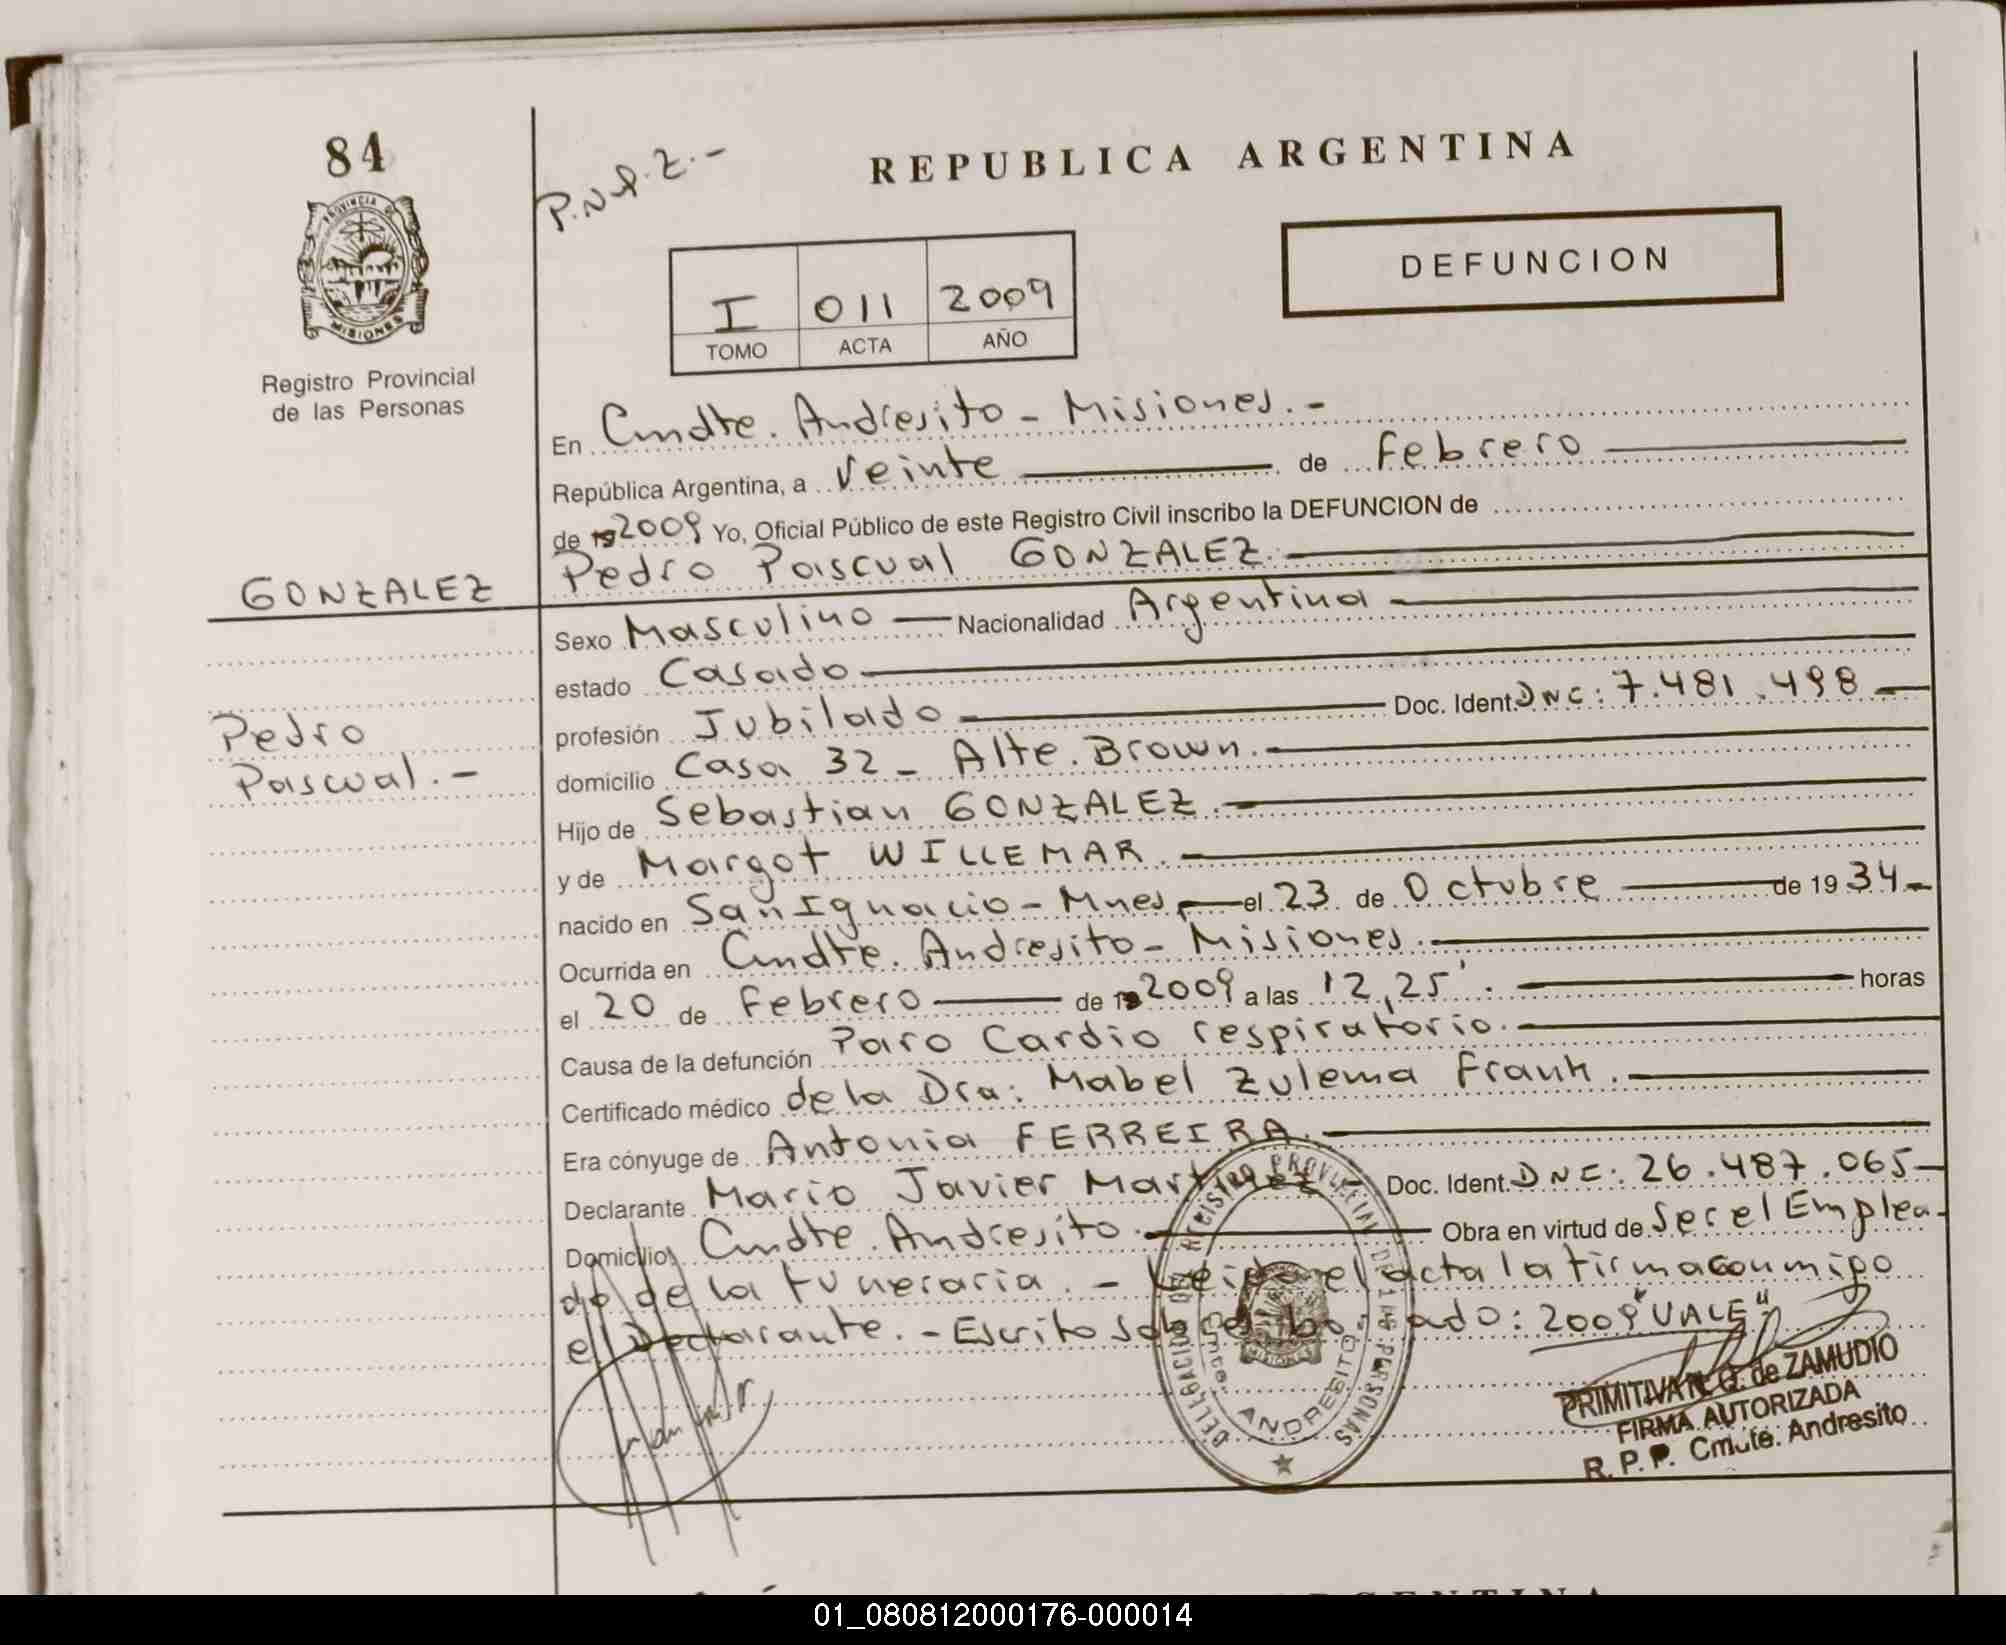 84
PROVINCIA DE
MISIONES
Registro Provincial
de las Personas
P.N.
REPUBLICA ARGENTINA
DEFUNCION
I 011 2009
TOMO ACTA AÑO
En Cmdte. Andresito - Misiones.-
República Argentina, a Veinte de Febrero
de 19 2009 Yo, Oficial Público de este Registro Civil inscribo la DEFUNCION de
GONZALEZ Pedro Pascual GONZALEZ.
Sexo Masculino Nacionalidad Argentina
estado Casado
Pedro
Pascual.-
profesión Jubilado Doc. Ident. DNC: 7.481.498
domicilio Casa 32 - Alte. Brown.
Hijo de Sebastian GONZALEZ.
y de Margot WILLEMAR.
nacido en San Ignacio - Mnes el 23 de Octubre de 19 34
Ocurrida en Cmdte. Andresito - Misiones.
el 20 de Febrero de 19 2009 a las 12,25'. horas
Causa de la defunción Paro Cardio respiratorio.
Certificado médico de la Dra: Mabel Zulema Frank.
Era cónyuge de Antonia FERREIRA.
Declarante Mario Javier Martinez - Doc. Ident. DNE: 26.487.065
Domicilio Cmdte. Andresito. Obra en virtud de Ser el Emplea-
do de la funeraria. - Leida el acta la firma conmigo
el Declarante. - Escrito sobre borrado: 2009 "VALE"
DELEGACION DEL REGISTRO PROVINCIAL DE LAS PERSONAS
Cmte. ANDRESITO
MISIONES
PRIMITIVA N. G. de ZAMUDIO
FIRMA AUTORIZADA
R. P. P. Cmdte. Andresito
01_080812000176-000014